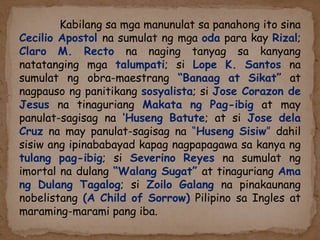 Kabilang sa mga manunulat sa panahong ito sina
Cecilio Apostol na sumulat ng mga oda para kay Rizal;
Claro M. Recto na naging tanyag sa kanyang
natatanging mga talumpati; si Lope K. Santos na
sumulat ng obra-maestrang “Banaag at Sikat” at
nagpauso ng panitikang sosyalista; si Jose Corazon de
Jesus na tinaguriang Makata ng Pag-ibig at may
panulat-sagisag na ‘Huseng Batute; at si Jose dela
Cruz na may panulat-sagisag na “Huseng Sisiw” dahil
sisiw ang ipinababayad kapag nagpapagawa sa kanya ng
tulang pag-ibig; si Severino Reyes na sumulat ng
imortal na dulang “Walang Sugat” at tinaguriang Ama
ng Dulang Tagalog; si Zoilo Galang na pinakaunang
nobelistang (A Child of Sorrow) Pilipino sa Ingles at
maraming-marami pang iba.